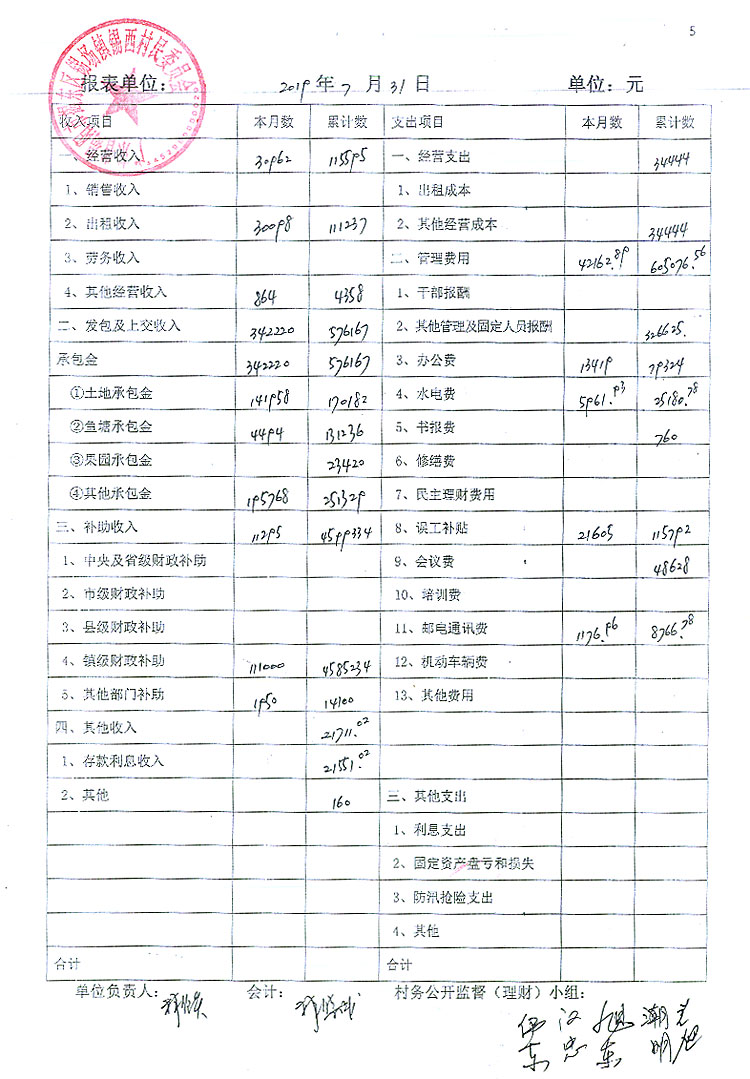 5
东区锡场镇锡西村民委员会
报表单位： 2019 年 7 月 31 日 单位：元
收入项目 本月数 累计数 支出项目 本月数 累计数
一、经营收入 30962 115595 一、经营支出 34444
1、销售收入 1、出租成本
2、出租收入 30098 111237 2、其他经营成本 34444
3、劳务收入 二、管理费用 42162.89 605076.56
4、其他经营收入 864 4358 1、干部报酬
二、发包及上交收入 342220 576167 2、其他管理及固定人员报酬 326625.
承包金 342220 576167 3、办公费 13419 79324
①土地承包金 141958 170182 4、水电费 5961.93 25180.78
②鱼塘承包金 4494 131236 5、书报费 760
③果园承包金 23420 6、修缮费
④其他承包金 195768 251329 7、民主理财费用
三、补助收入 11295 4599334 8、误工补贴 21605 115792
1、中央及省级财政补助 9、会议费 48628
2、市级财政补助 10、培训费
3、县级财政补助 11、邮电通讯费 1176.96 8766.78
4、镇级财政补助 111000 4585234 12、机动车辆费
5、其他部门补助 1950 14100 13、其他费用
四、其他收入 21711.02
1、存款利息收入 21551.02
2、其他 160 三、其他支出
1、利息支出
2、固定资产盘亏和损失
3、防汛抢险支出
4、其他
合计 合计
单位负责人： 会计： 村务公开监督（理财）小组：